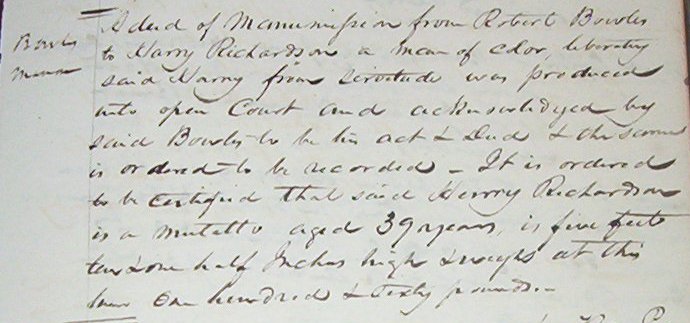 Bowles
Manum
A deed of Manumission from Robert Bowles
to Harry Richardson a man of color, liberating
said Harry from servitude was produced
into open Court and acknowledged by
said Bowles to be his act & Deed & the same
is ordered to be recorded – It is ordered
to be certified that said Henry Richardson
is a mulatto aged 39 years, is five feet
ten & one half Inches high & weighs at this
time one hundred & sixty pounds –